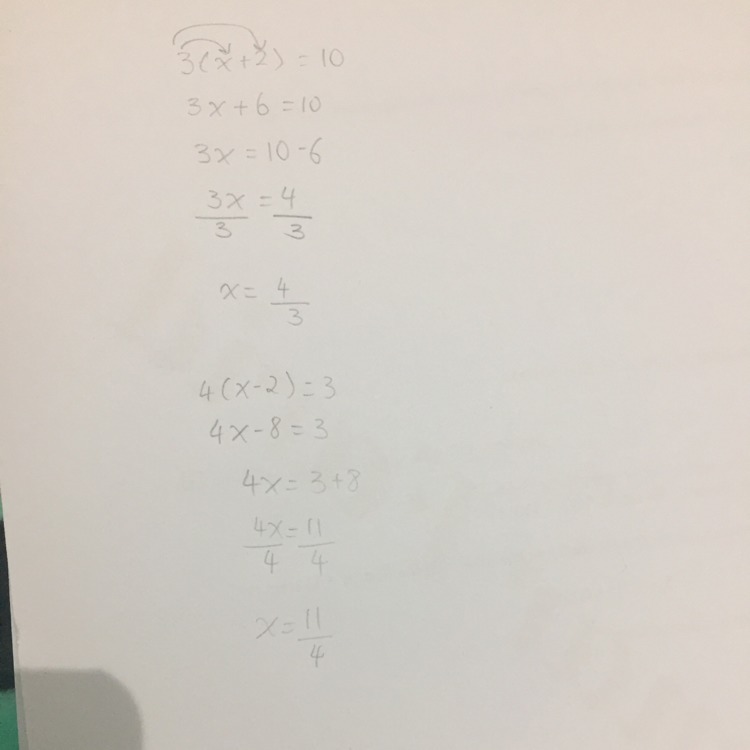 3(x+2) = 10
3x + 6 = 10
3x = 10 - 6
3x/3 = 4/3
x = 4/3
4(x-2) = 3
4x - 8 = 3
4x = 3 + 8
4x/4 = 11/4
x = 11/4